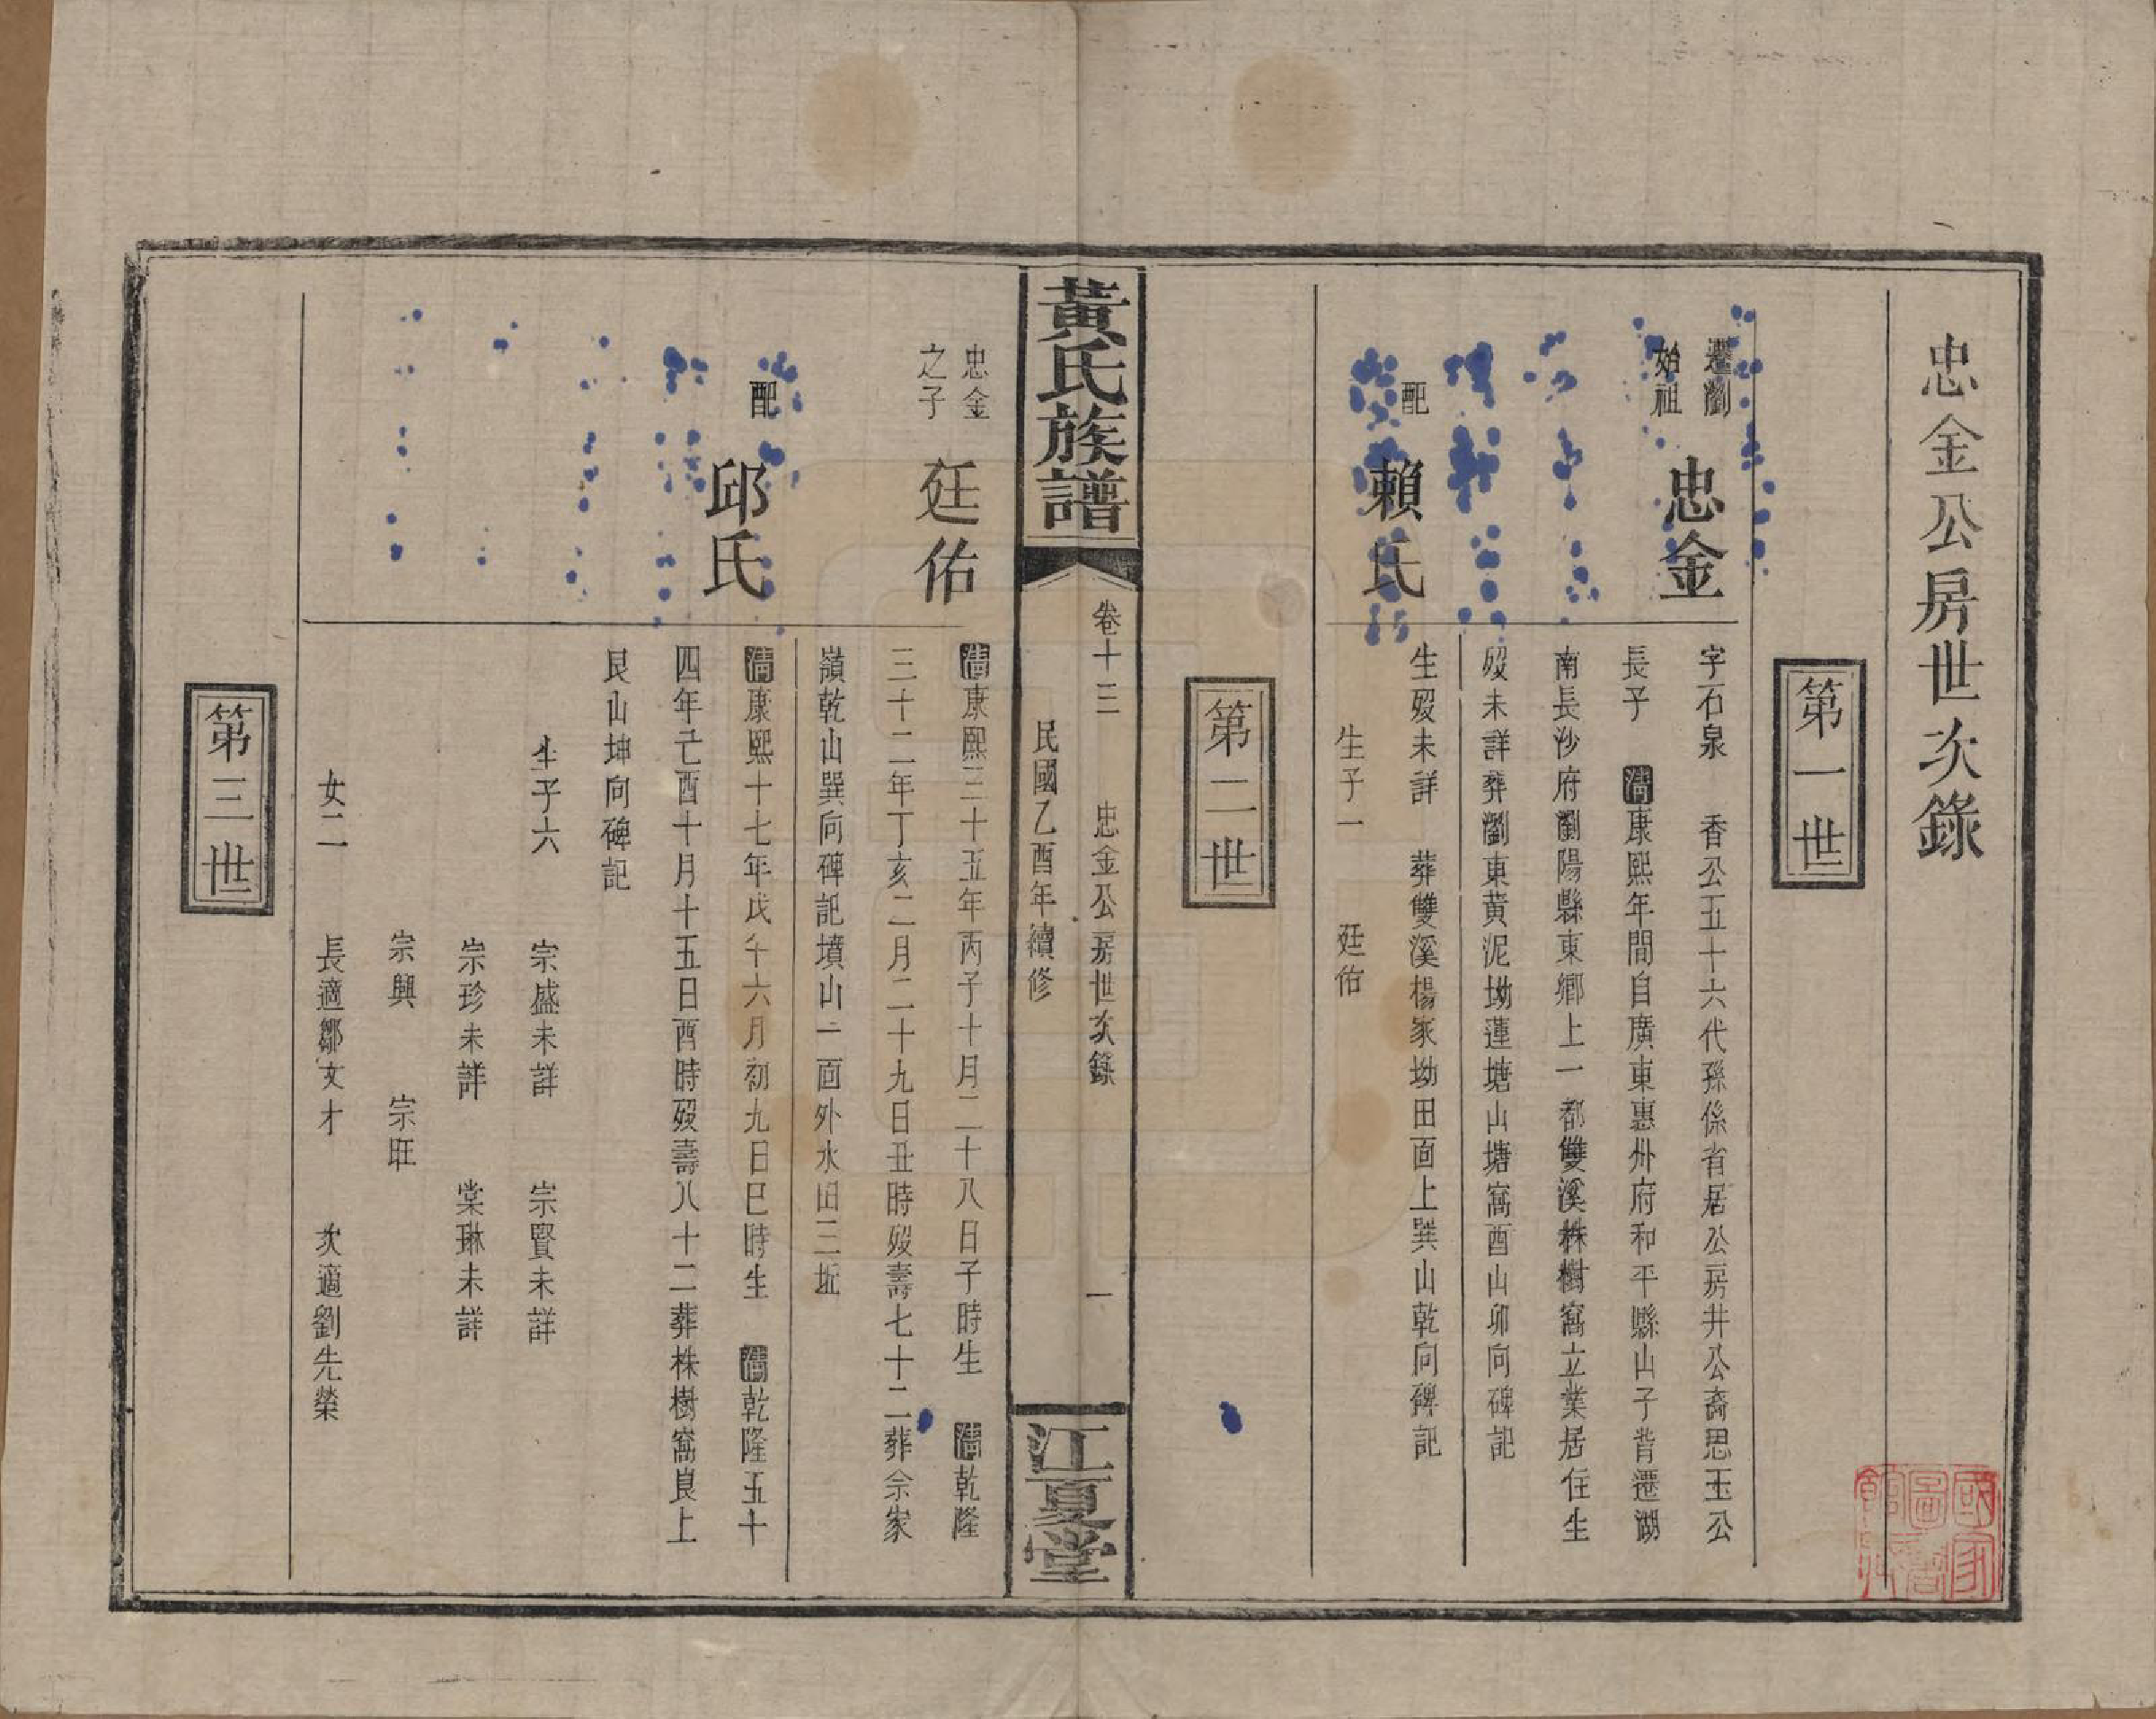 忠金公房世次錄
第一世
遷瀏
始祖
忠金
字石泉　香公五十六代孫係省居公房井公裔思玉公
長子　清康熙年間自廣東惠州府和平縣山子背遷湖
南長沙府瀏陽縣東鄉上一都雙溪株樹窩立業居住生
歿未詳葬瀏東黃泥坳蓮塘山塘窩酉山卯向碑記
配
賴氏
生歿未詳　葬雙溪楊家坳田面上巽山乾向碑記
生子一　廷佑
第二世
黃氏族譜
卷十三　忠金公房世次錄　一
民國乙酉年續修
江夏堂
忠金
之子
廷佑
清康熙三十五年丙子十月二十八日子時生　清乾隆
三十二年丁亥二月二十九日丑時歿壽七十二葬佘家
嶺乾山巽向碑記墳山一面外水田三坵
配
邱氏
清康熙十七年戊午六月初九日巳時生　清乾隆五十
四年己酉十月十五日酉時歿壽八十二葬株樹窩良上
艮山坤向碑記
生子六　宗盛未詳　宗賢未詳
宗珍未詳　棠琳未詳
宗興　宗旺
女二　長適鄒文才　次適劉先榮
第三世
國家圖書館藏